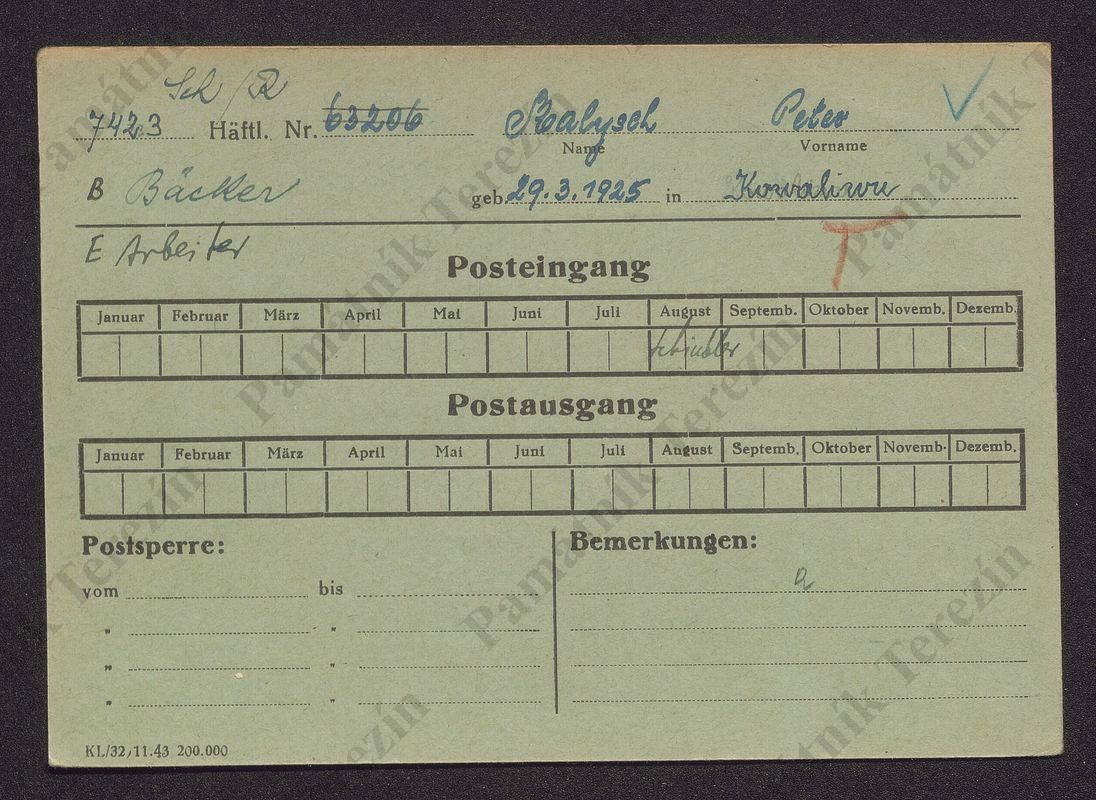 Sch /R
7423 Häftl. Nr. 63206 Skalysch Peter
Name Vorname
B Bäcker geb. 29.3.1925 in
E Arbeiter
Posteingang
Januar Februar März April Mai Juni Juli August Septemb. Oktober Novemb. Dezemb.
Schindler
Postausgang
Januar Februar März April Mai Juni Juli August Septemb. Oktober Novemb. Dezemb.
Postsperre: Bemerkungen:
vom bis
" "
" "
" "
KL/32/11.43 200.000
Památník Terezín